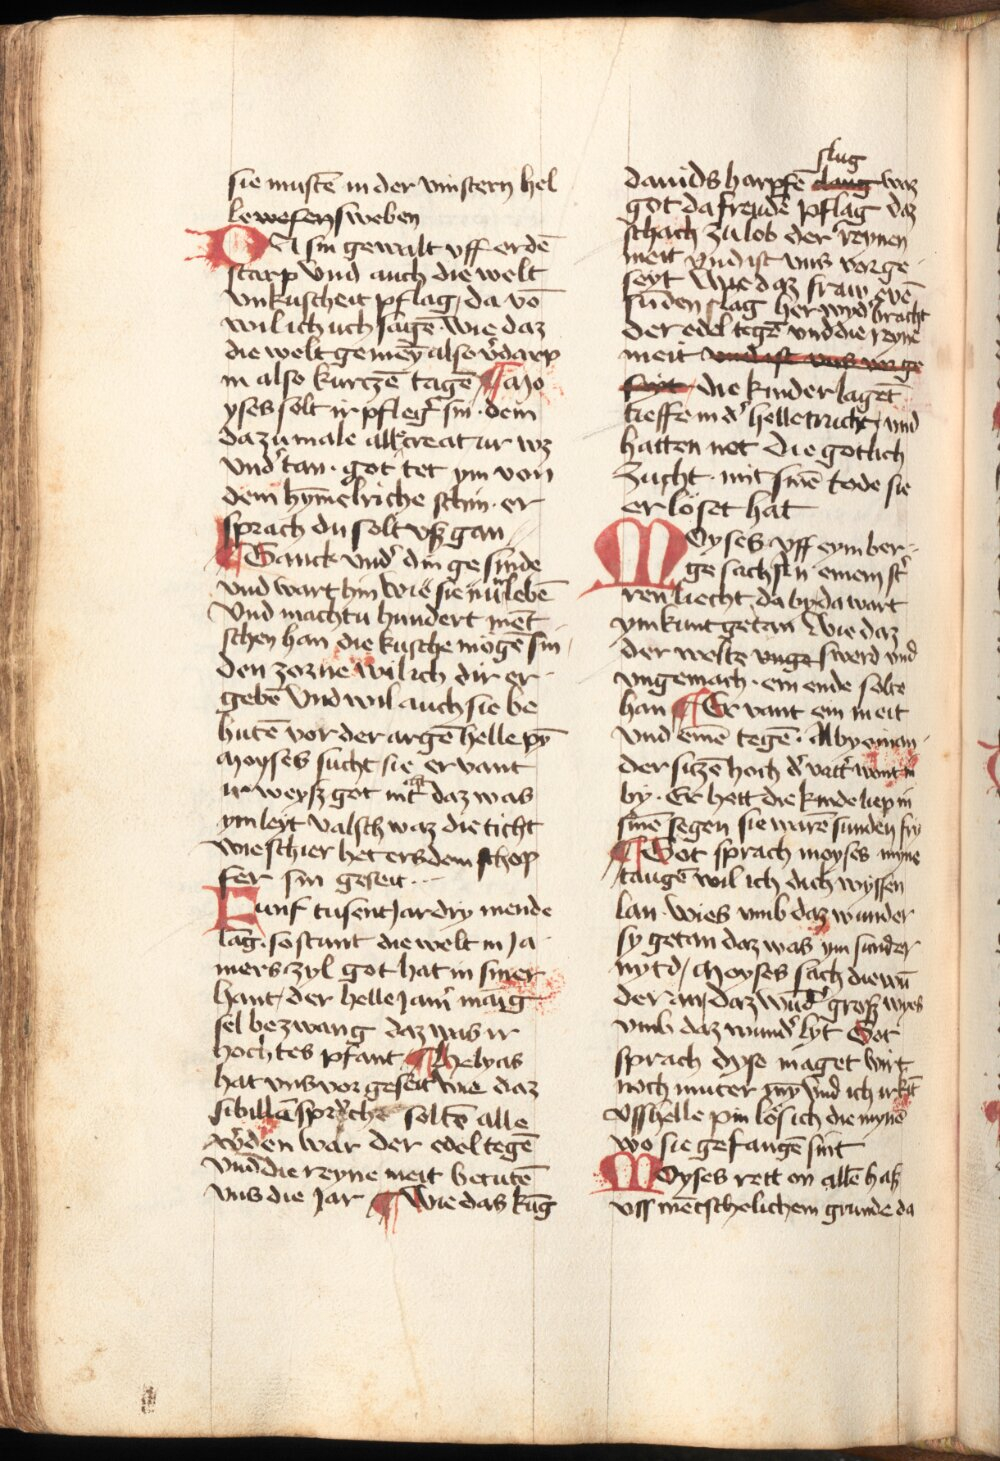 sie mustē in der vinstern hel
lewesens weben
DA sin gewalt vff erdē
starp vnd auch die welt
vnkuscheit pflag / da vō
wil ich uch sagē · wie daz
die welt gemeȳ also v̾darp
in also kurczē tagē ¶ Mo
yses solt ir pfleg̾ sin · dem
da zu male alle creatur wz
vnd̾ tan · got tet ym von
dem hȳmelriche schin · er
sprach du solt vß gan
¶ Danck vnd̾ din gesinde
vnd wart hin wie sie nū lebē
Vnd machtu hundert mēt
schen han die kusche mogē sin
den zorne wil ich dir er
gebē Vnd wil auch sie be
hutē vor der argē helle pȳ
Moyses sucht sie er vant
ir weysz got nit daz was
ym leyt valsch waz die ticht
wie schier het ers dem schop
fer sin geseit ···
Funf tusent Jar dry mende
lāg · so stunt die welt in Ja
mers zyl got hat in siner
hant / der helle Jam̾ māig
sel bezwang daz was ir
hochtes pfant ¶ Helyas
hat vns vor geseit wie daz
sibillē sprüche soltē alle
w̾den war der edel tegē
vnd die reyne meit betutē
vns die Jar ¶ Wie das kūg
slug
dauids harpfē clang waz
got da freudē pflag daz
schach zu lob der reynen
meit vnd ist vns vor ge
seyt Wie daz fraw evē
sunden slag her wyd̾ bracht
der edel tegē vnd die reyne
meit vnd ist vns vor ge
seyt / die kinder lagēt
tieffe in d̾ helle trucht / vnd
hatten not die gotlich
Zucht · mit sinē tode sie
er löset hat
MOyses vff eym ber
ge sach sten einem st̾
ren liecht da by da wart
ym kunt getan Wie daz
der welte vnge swerd vnd
vngemach · ein ende solte
han ¶ Er vant ein meit
vnd einē tegē · Al by einan
der siczē hoch d̾ vatt̾ wont in
by · Er hett die kinde liep in
sinē segen sie warē sunden fry
¶ Got sprach moyses myne
taugē wil ich dich wyssen
lan · wies vmb daz wunder
sy getan daz was ym sunder
nyt d / Moyses sach die wū
der an / daz wūd̾ grosz wyes
vmb daz wund̾ lyt Got
sprach dyse maget wirt
noch muter my̅ vnd ich irkīt
Vsshelle pin lös ich die mynē
wo sie gefangē sint
MOyses rett on allē haß
vss mētschelichem grunde da